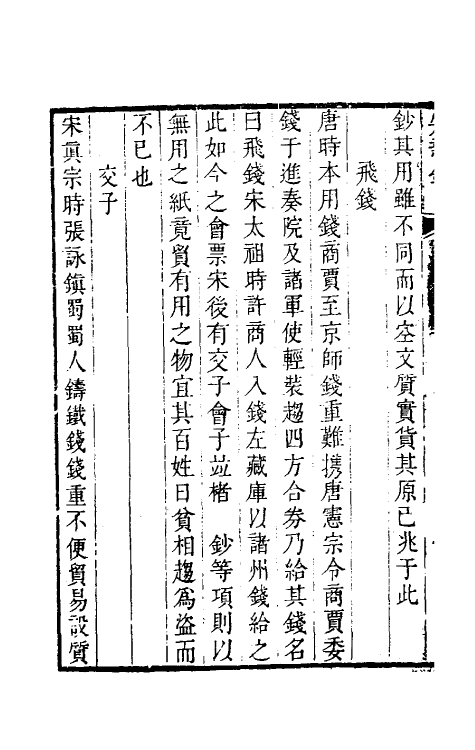 鈔其用雖不同而以空文質實貨其原已兆于此
飛錢
唐時本用錢商賈至京師錢重難携唐憲宗令商賈委
錢于進奏院及諸軍使輕裝趨四方合券乃給其錢名
曰飛錢宋太祖時許商人入錢左藏庫以諸州錢給之
此如今之會票宋後有交子會子竝楮 鈔等項則以
無用之紙竟貿有用之物宜其百姓日貧相趨為盜而
不已也
交子
宋真宗時張詠鎮蜀蜀人鑄鐵錢錢重不便貿易設質